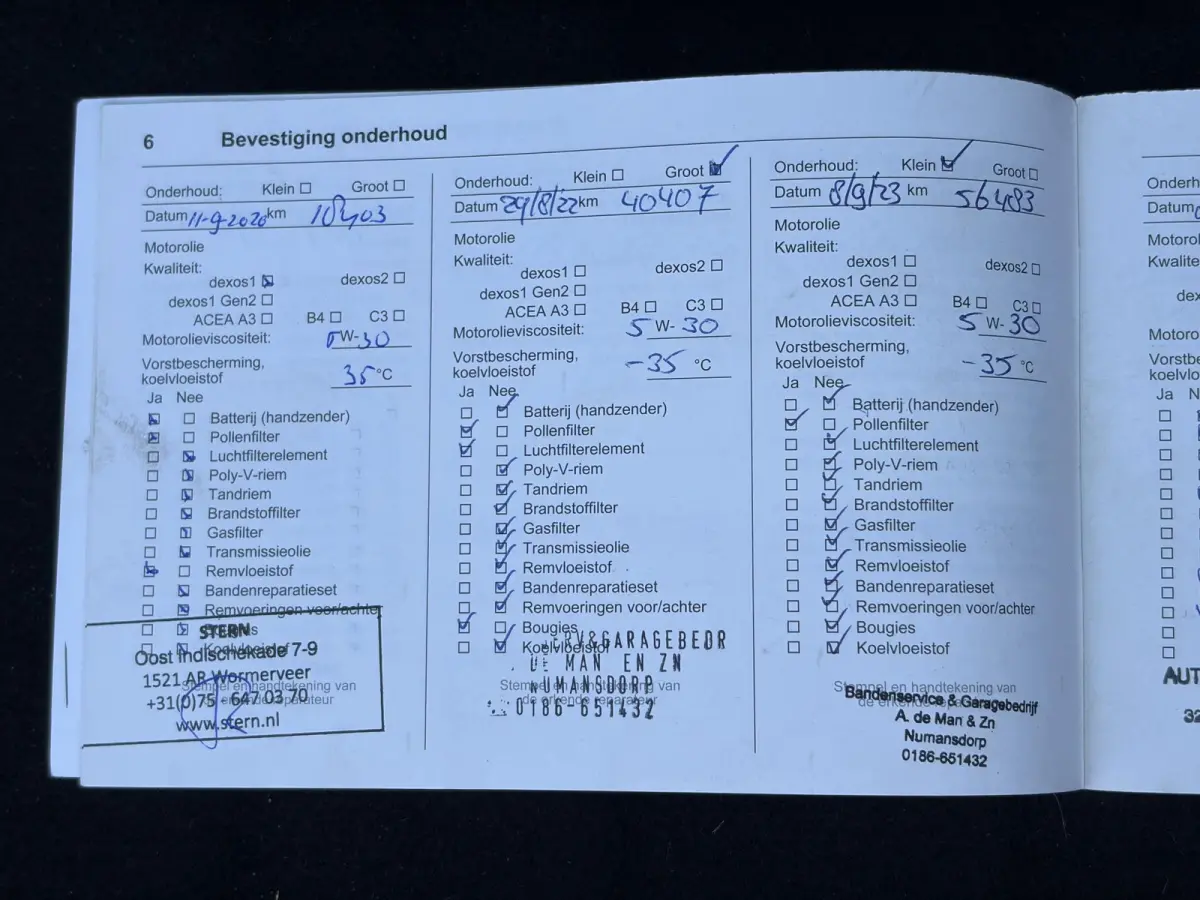 6 Bevestiging onderhoud
Onderhoud: Klein Groot
Datum 11-9-2020 km 18403
Motorolie
Kwaliteit:
dexos1 dexos2
dexos1 Gen2
ACEA A3 B4 C3
Motorolieviscositeit: W-30
Vorstbescherming,
koelvloeistof 35 °C
Ja Nee
Batterij (handzender)
Pollenfilter
Luchtfilterelement
Poly-V-riem
Tandriem
Brandstoffilter
Gasfilter
Transmissieolie
Remvloeistof
Bandenreparatieset
Remvoeringen voor/achter
Bougies
Koelvloeistof
Stempel en handtekening van
de erkende reparateur
STERN
Oost Indischekade 7-9
1521 AR Wormerveer
+31(0)75 - 647 03 70
www.stern.nl
Onderhoud: Klein Groot
Datum 29/8/22 km 40407
Motorolie
Kwaliteit:
dexos1 dexos2
dexos1 Gen2
ACEA A3 B4 C3
Motorolieviscositeit: 5 W- 30
Vorstbescherming,
koelvloeistof -35 °C
Ja Nee
Batterij (handzender)
Pollenfilter
Luchtfilterelement
Poly-V-riem
Tandriem
Brandstoffilter
Gasfilter
Transmissieolie
Remvloeistof
Bandenreparatieset
Remvoeringen voor/achter
Bougies
Koelvloeistof
Stempel en handtekening van
de erkende reparateur
DE MAN EN ZN
NUMANSDORP
0186-651432
Onderhoud: Klein Groot
Datum 8/9/23 km 56483
Motorolie
Kwaliteit:
dexos1 dexos2
dexos1 Gen2
ACEA A3 B4 C3
Motorolieviscositeit: 5 W- 30
Vorstbescherming,
koelvloeistof -35 °C
Ja Nee
Batterij (handzender)
Pollenfilter
Luchtfilterelement
Poly-V-riem
Tandriem
Brandstoffilter
Gasfilter
Transmissieolie
Remvloeistof
Bandenreparatieset
Remvoeringen voor/achter
Bougies
Koelvloeistof
Stempel en handtekening van
de erkende reparateur
Bandenservice & Garagebedrijf
A. de Man & Zn
Numansdorp
0186-651432
Onderh
Datum
Motorol
Kwalite
dex
Motoro
Vorstbe
koelvlo
Ja N
AUT
32